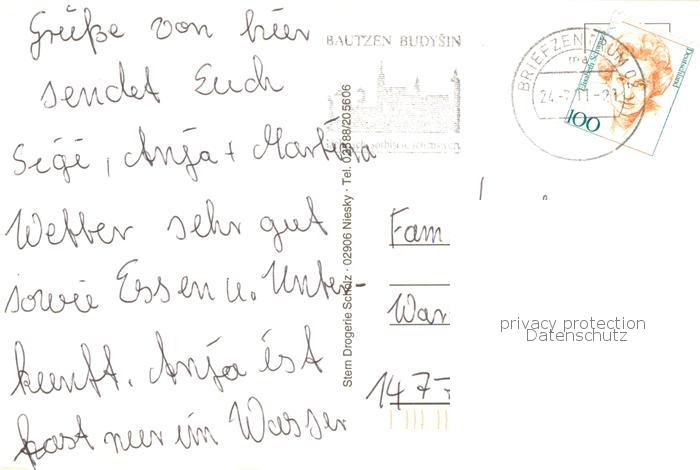 Grüße von hier
sendet Euch
Sigi, Anja + Martina
Wetter sehr gut
sowie Essen u. Unter-
kunft. Anja ist
fast nur im Wasser
BAUTZEN BUDYŠIN
Stern Drogerie Scholz · 02906 Niesky · Tel. 03588/205606
BRIEFZENTRUM 02
ma
24.-7.11-21
Deutschland
100
Fam
War
1477
privacy protection
Datenschutz